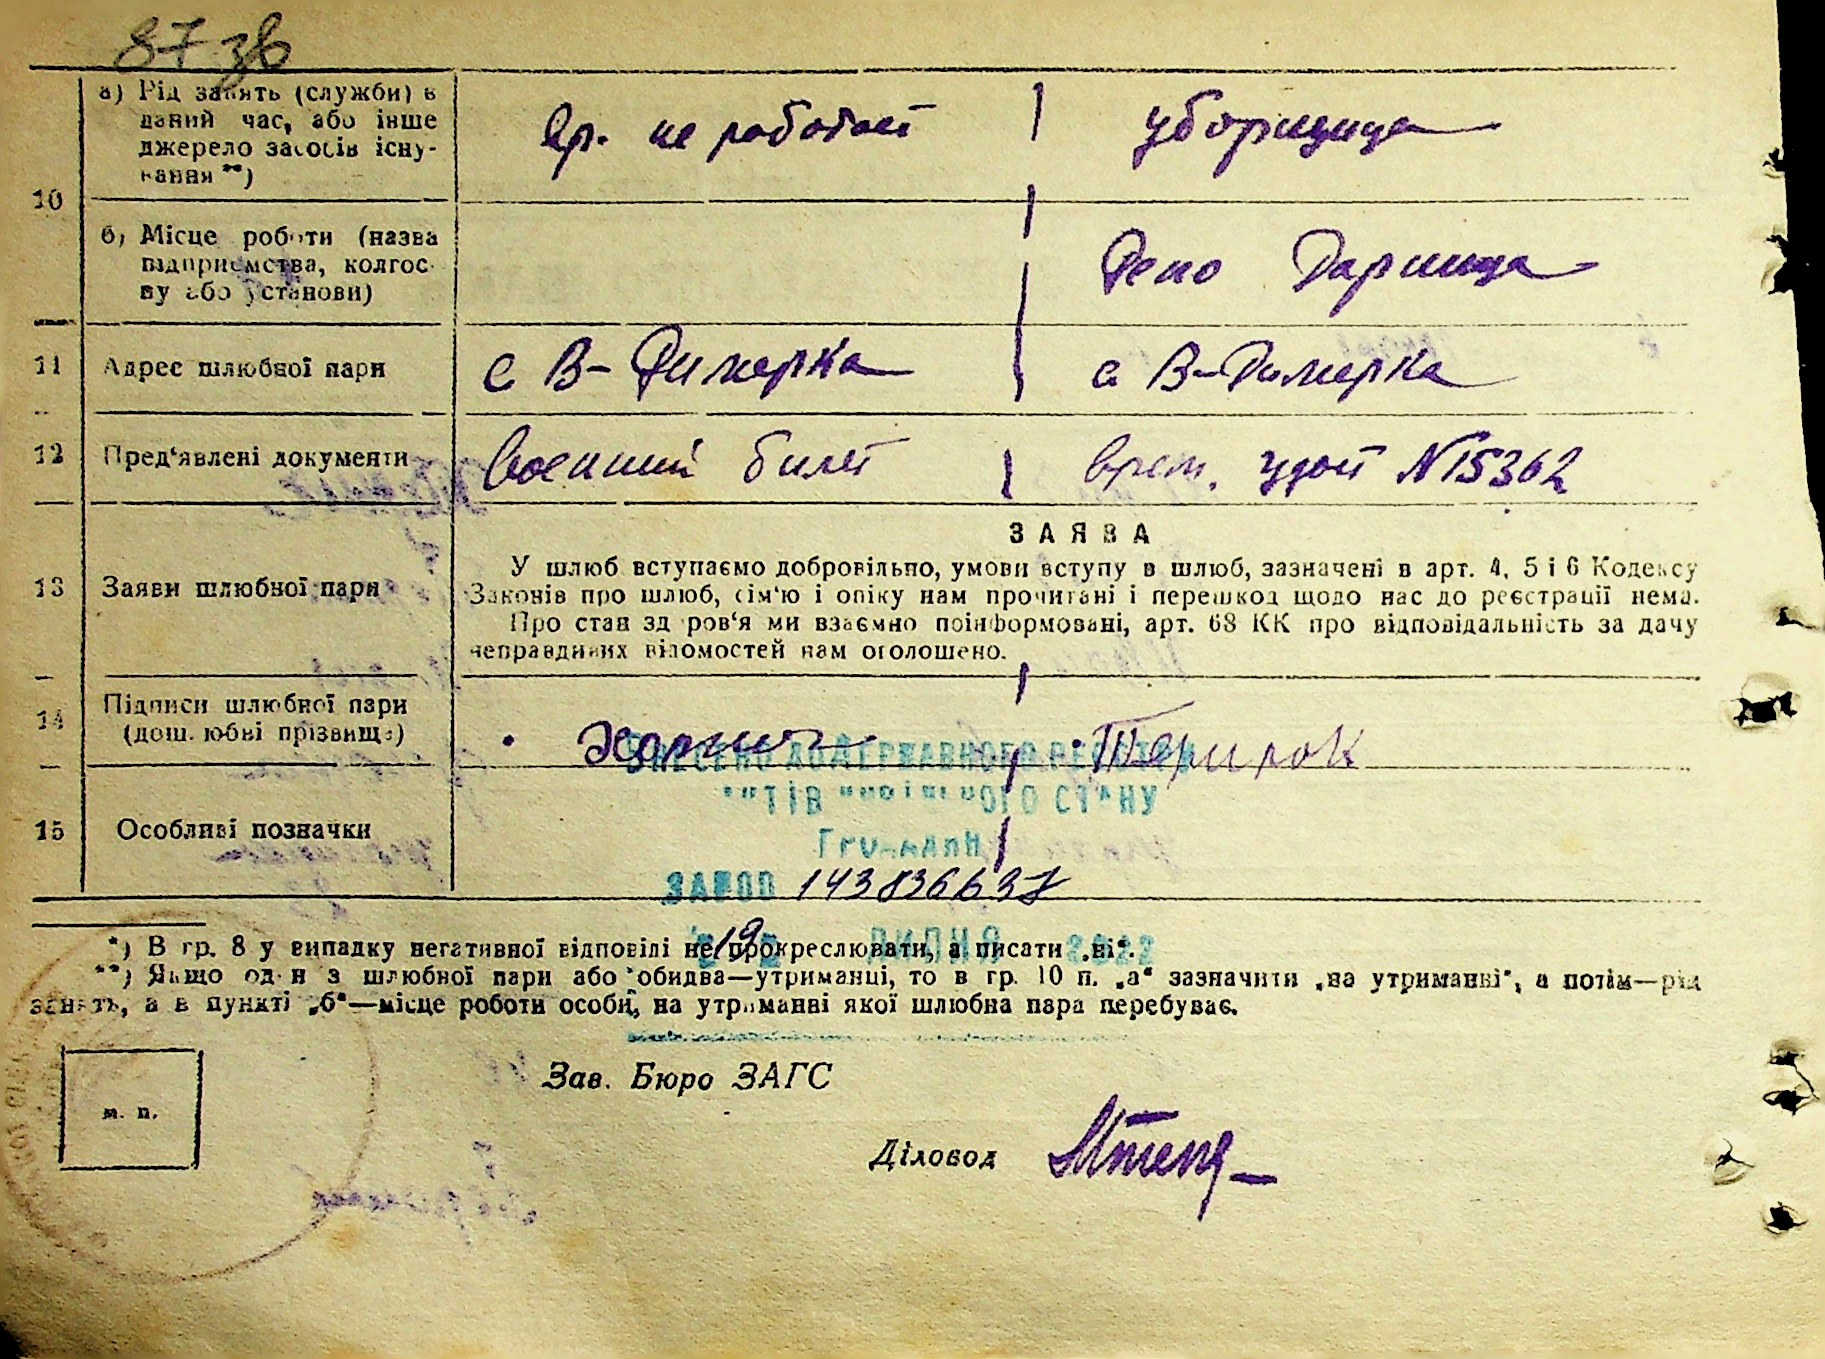 87 зв
10
а) Рід занять (служби) в
даний час, або інше
джерело засобів існу-
вання **)
Вр. не работает
уборщица
б) Місце роботи (назва
підприємства, колгос-
пу або установи)
Депо Дарница
11
Адрес шлюбної пари
с В-Димерка
с В-Димерка
12
Пред'явлені документи
Военный билет
врем. удост N15362
13
Заяви шлюбної пари
ЗАЯВА
У шлюб вступаємо добровільно, умови вступу в шлюб, зазначені в арт. 4, 5 і 6 Кодексу
Законів про шлюб, сім'ю і опіку нам прочитані і перешкод щодо нас до реєстрації нема.
Про стан здоров'я ми взаємно поінформовані, арт. 68 КК про відповідальність за дачу
неправдивих відомостей нам оголошено.
14
Підписи шлюбної пари
(дошлюбні прізвища)
ВНЕСЕНО ДО ДЕРЖАВНОГО РЕЄСТРУ
АКТІВ ЦИВІЛЬНОГО СТАНУ
ГРОМАДЯН
15
Особливі позначки
ЗА №00 143836637
19 ЛИПНЯ 2022
*) В гр. 8 у випадку негативної відповіді не прокреслювати, а писати „ні“.
**) Якщо один з шлюбної пари або обидва—утриманці, то в гр. 10 п. „а“ зазначити „на утриманні“, а потім—рід
занять, а в пункті „б“—місце роботи особи, на утриманні якої шлюбна пара перебуває.
Зав. Бюро ЗАГС
м. п.
Діловод